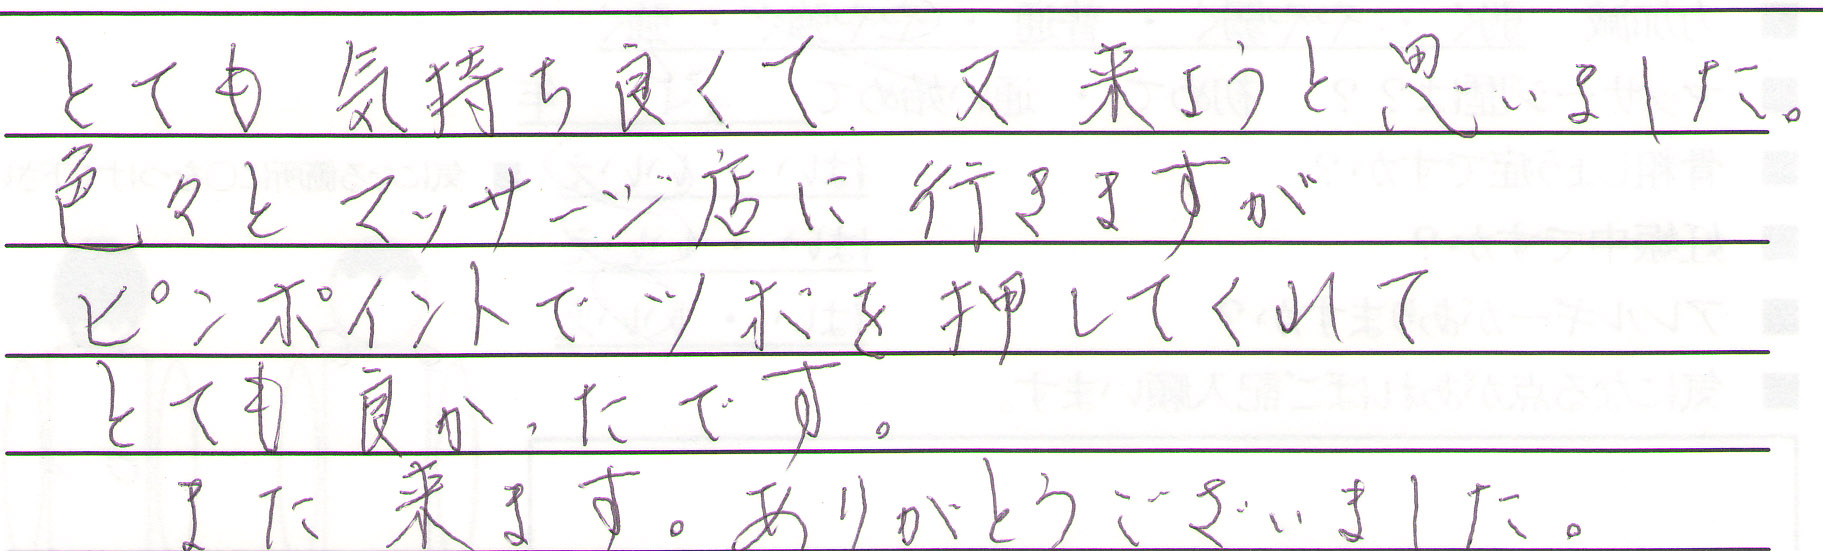 とても気持ち良くて 又来ようと思いました。
色々とマッサージ店に行きますが
ピンポイントでツボを押してくれて
とても良かったです。
また来ます。ありがとうございました。